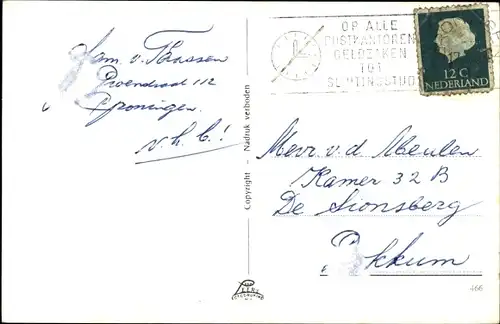 Fam. v. Thassen
112
Groningen.
v. h. C!
Copyright - Nadruk verboden
OP ALLE
POSTKANTOREN
GELDZAKEN
TOT
SLUITINGSTIJD
12 C
NEDERLAND
Mevr. v. d. Meulen
Kamer 32 B
De Sionsberg
Dokkum
466